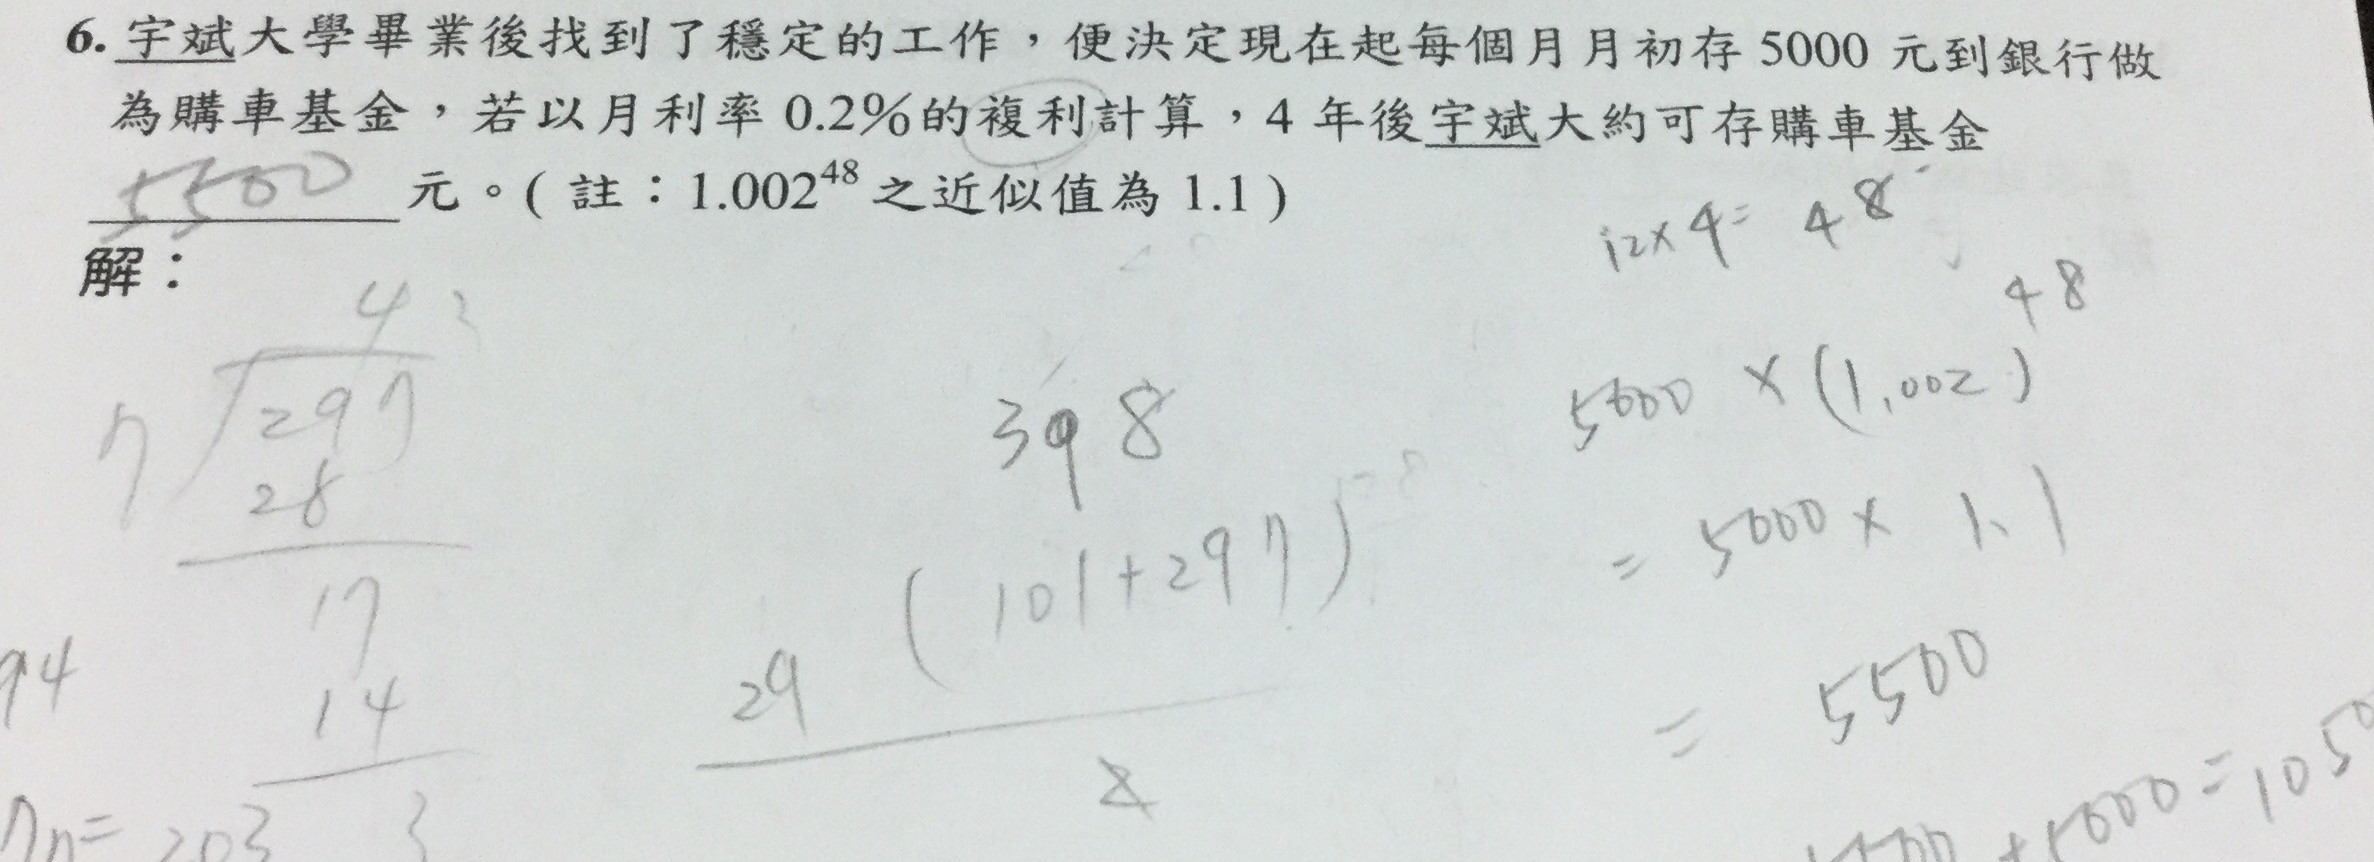 6. 宇斌大學畢業後找到了穩定的工作，便決定現在起每個月月初存 5000 元到銀行做
為購車基金，若以月利率 0.2%的複利計算，4 年後宇斌大約可存購車基金
5500 元。( 註：1.002⁴⁸ 之近似值為 1.1 )
解：
12×4= 48
4 3
7 297
28
17
14
3
94
7n= 203
398
29 (101+297)
2
5000 × (1.002)⁴⁸
= 5000 × 1.1
= 5500
5500 + 5000 = 1050